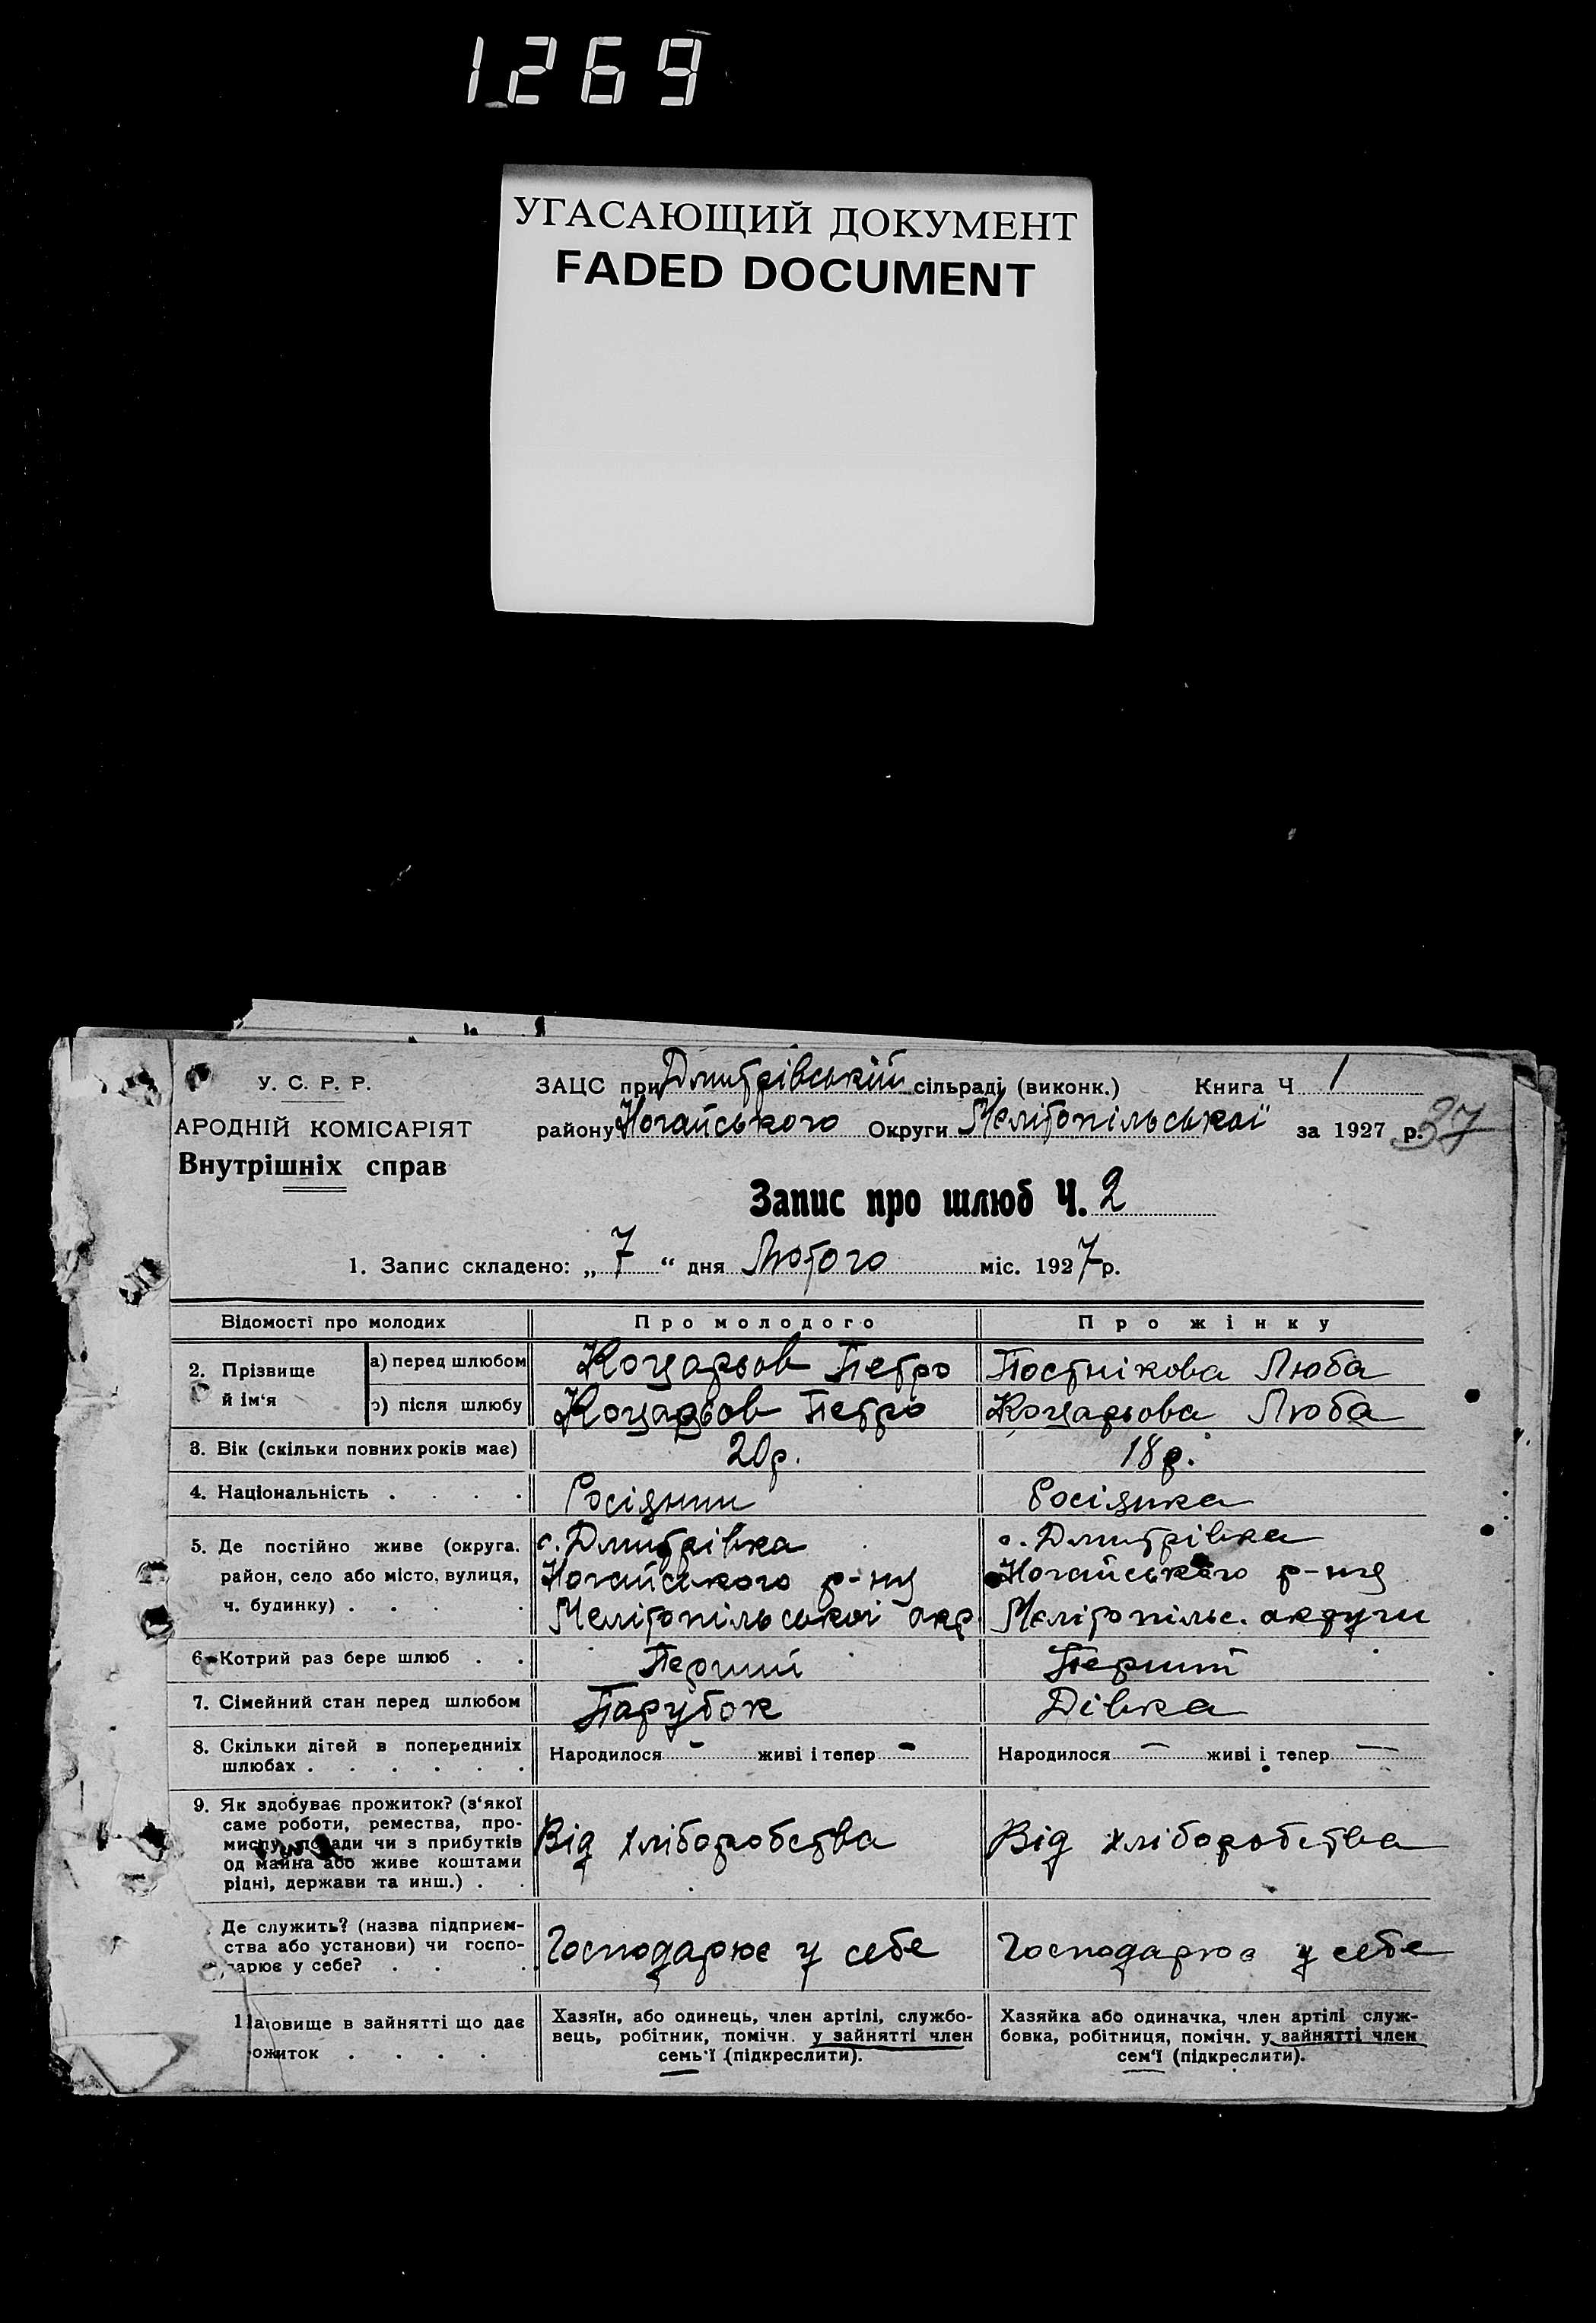 1269
УГАСАЮЩИЙ ДОКУМЕНТ
FADED DOCUMENT
У. С. Р. Р.
АРОДНІЙ КОМІСАРІЯТ
Внутрішніх справ
ЗАЦС при Дмитрівській сільраді (виконк.) Книга Ч 1
району Ногайського Округи Мелітопільської за 1927 р.
37
Запис про шлюб Ч. 2
1. Запис складено: „ 7 “ дня Лютого міс. 1927 р.
Відомості про молодих Про молодого Про жінку
2. Прізвище й ім‘я
а) перед шлюбом Коцарьов Петро Постнікова Люба
) після шлюбу Коцарьов Петро Коцарьова Люба
3. Вік (скільки повних років має) 20 р. 18 р.
4. Національність . . . . Росіянин Росіянка
5. Де постійно живе (округа, с. Дмитрівка с. Дмитрівка
район, село або місто, вулиця, Ногайського р-ня Ногайського р-ня
ч. будинку) . . . . Мелітопільської окр. Мелітопільс. округи
6. Котрий раз бере шлюб . . Перший Перший
7. Сімейний стан перед шлюбом Парубок Дівка
8. Скільки дітей в попередниіх
шлюбах . . . . . . Народилося - живі і тепер - Народилося - живі і тепер -
9. Як здобуває прожиток? (з‘якої
саме роботи, ремества, про-
мислу, посади чи з прибутків Від хліборобства Від хліборобства
од майна або живе коштами
рідні, держави та инш.) . .
Де служить? (назва підприєм-
ства або установи) чи госпо- Господарює у себе Господарює у себе
арює у себе? . . .
11 ановище в зайнятті що дає
ожиток . . . .
Хазяїн, або одинець, член артілі, службо-
вець, робітник, помічн. у зайнятті член
семь‘ї (підкреслити).
Хазяйка або одиначка, член артілі служ-
бовка, робітниця, помічн. у зайнятті член
сем‘ї (підкреслити).